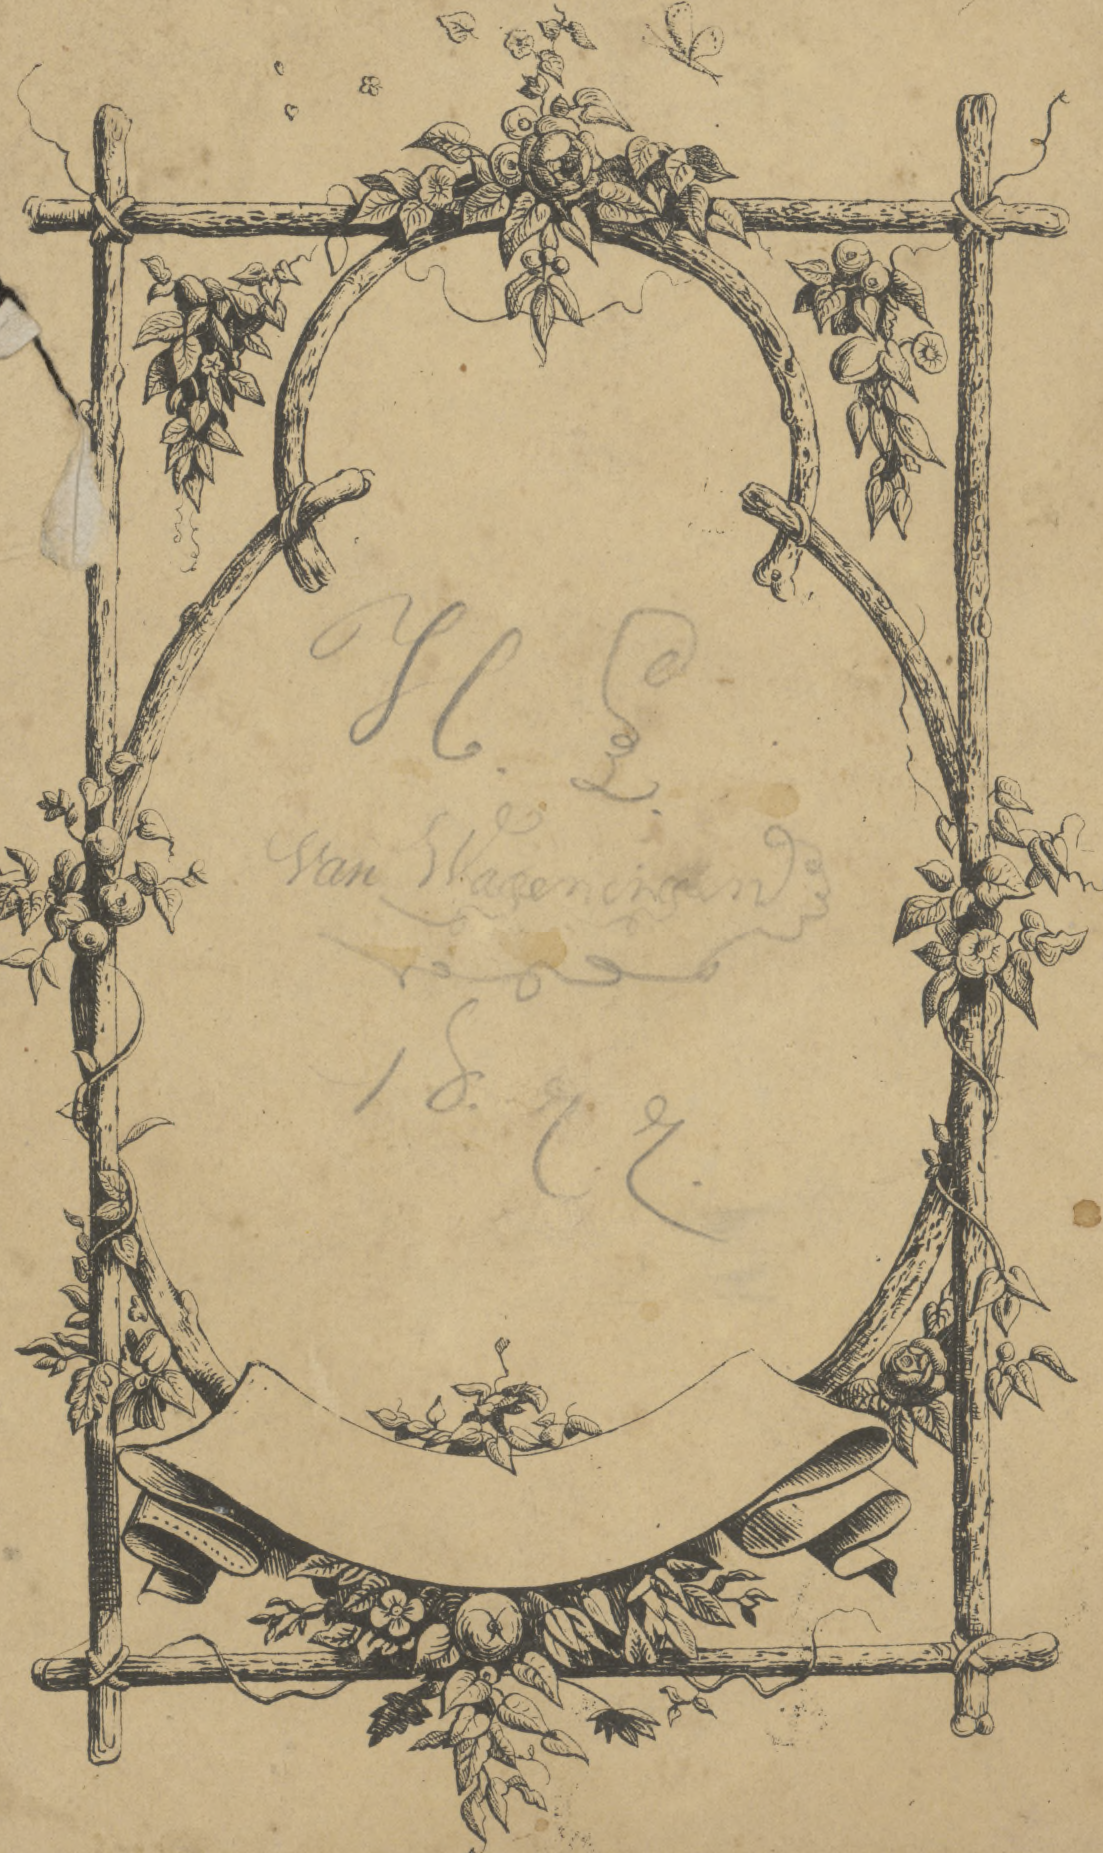 H. L.
Van Wageningen
18.77.